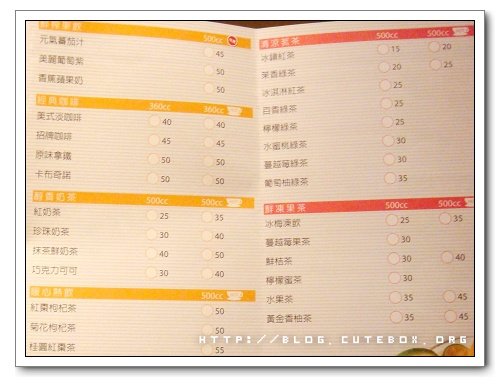 500cc
元氣蕃茄汁 45
美麗葡萄紫 50
香蕉蘋果奶 50
經典咖啡 360cc 360cc
美式淡咖啡 40 40
招牌咖啡 45 45
原味拿鐵 50 50
卡布奇諾 50 50
醇香奶茶 500cc 500cc
紅奶茶 25 35
珍珠奶茶 30 40
抹茶鮮奶茶 30 40
巧克力可可 30 40
暖心熱飲 500cc
紅棗枸杞茶 50
菊花枸杞茶 50
桂圓紅棗茶 55
清涼茗茶 500cc 500cc
冰鎮紅茶 15 20
茉香綠茶 20 25
冰淇淋紅茶 25
百香綠茶 30
檸檬綠茶 30
水蜜桃綠茶 30
蔓越莓綠茶 30
葡萄柚綠茶 35
鮮凍果茶 500cc 500cc
冰梅凍飲 25 35
蔓越莓果茶 30
鮮桔茶 30 40
檸檬蜜茶 30
水果茶 35 45
黃金香柚茶 35 45
HTTP://BLOG.CUTEBOX.ORG